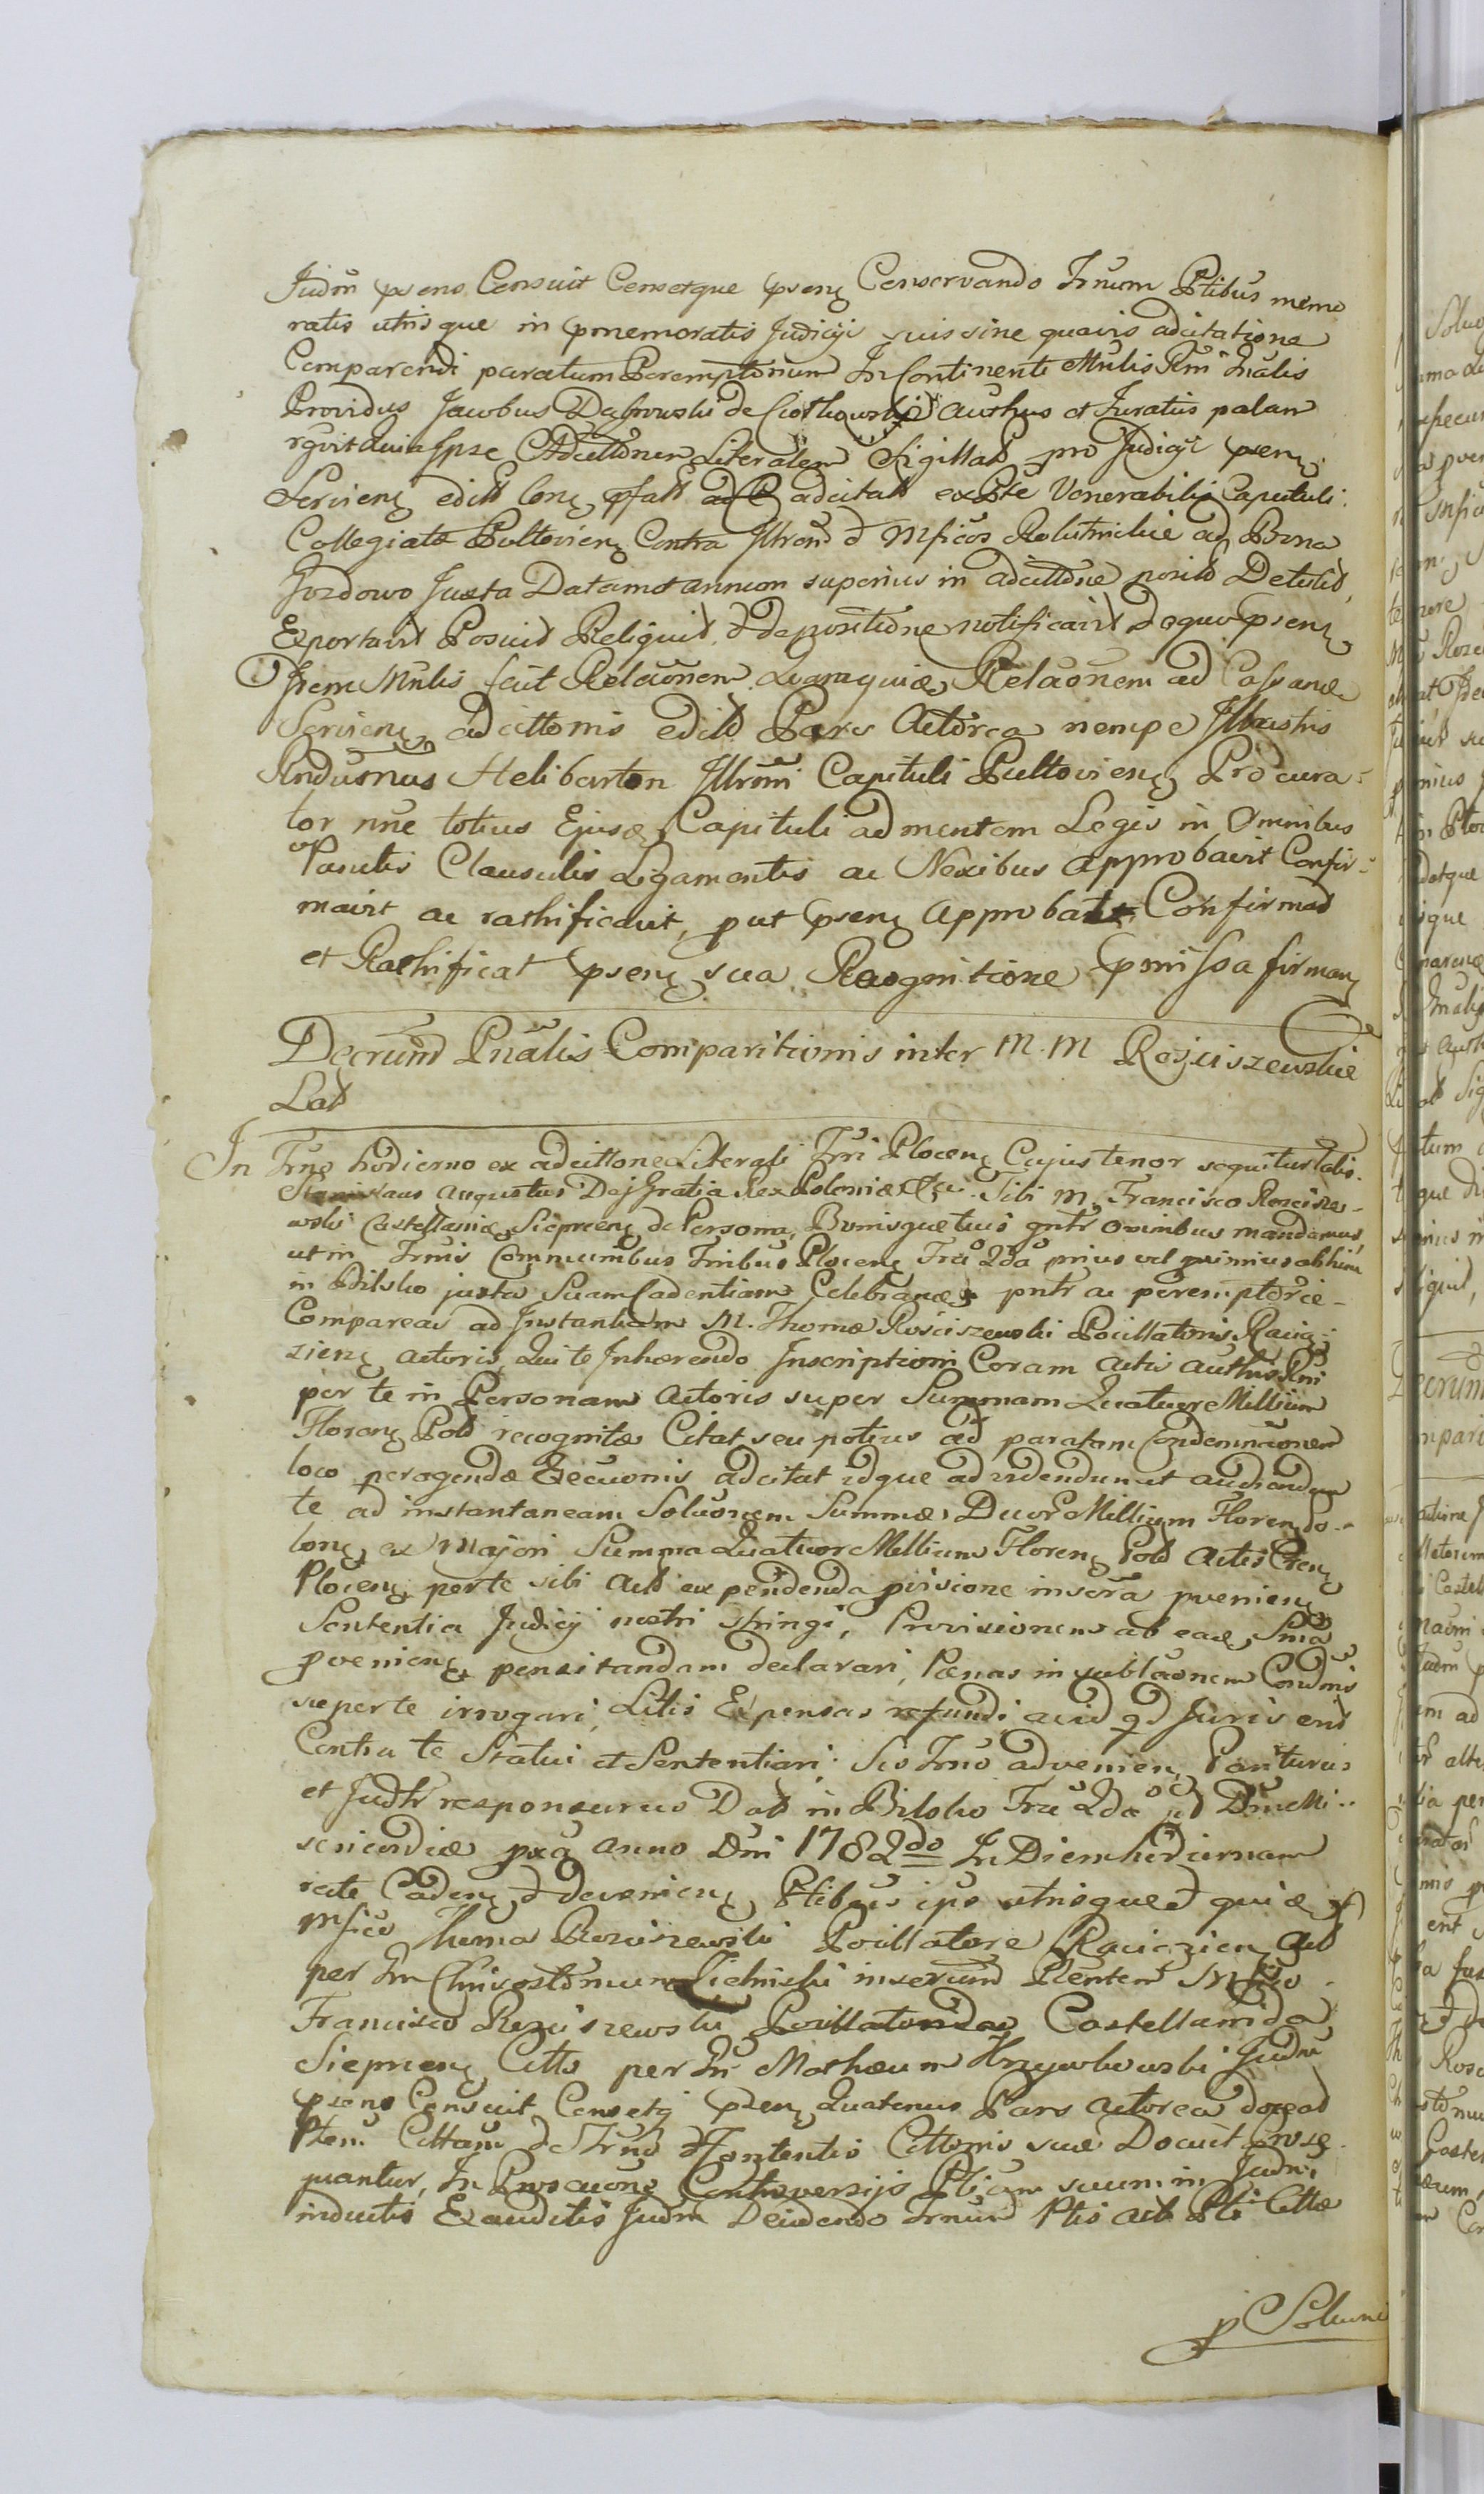 Judm psens Censuit Censetque psenz Conservando Trnum Ptibus memo
ratis utrisque in pmemoratis Judicij suis sine quavis adcitatione
Comparendi paratum Peremptorium In Continenti Mnlis Rni Gnalis
Providus Jacobus authus et Juratus palam
rgvit quia Ipse Adcittonem Literalem Sigillatt pro Judicij psenz
Servienz editt ad adcitatt ex Pte Venerabilis Capituli
Collegiatæ Pultovienz Contra Illrem et Mficos ad Bona
Gozdowo Juxta Datam et annum superius in adcittone positt Detulit,
Exportavit Posuit Reliquit, et depositione notificavit de quo psenz
Idem Mnlis fecit Relaonem. Quamquidem Relaonem ad Cassandæ
Servienz adcittonis editt Pars Actorea nempe Illustris
Rndusmus Helibarton Illrmi Capituli Pultovienz Procura-
tor nne totius Ejusd Capituli ad mentem Legis in Omnibus
Punctis Clausulis Ligamentis ac Nexibus approbavit Confir-
mavit ac rathificavit, put psenz approbat Confirmat
et Rathificat psenz sua Recognitione pmissa firmanz
Decrum Pnalis Comparitionis inter M. M Rosciszewskie
Latt
In Trno hodierno ex adcittone Literali Trri Plocenz Cujus tenor sequitur talis.
Stanislaus Augustus Dej Gratia Rex Poloniæ &c. Tibi M. Francisco Roscisze-
wski Castellanidæ Sieprcenz de Persona, Bonisque tuis gntr omnibus mandamus,
ut in Trnis Communibus Trribus Plocenz Fria 2da prius vel primius abhinc
in Bilsko juxta Suam Cadentiam Celebrandis pntr ac peremptorie
Compareas ad Instantiam M. Thomæ Rosciszewski Pocillatoris Raciąż-
zienz actoris, Qui te Inhærendo Inscriptioni Coram actis authis Rni
per te in Personam actoris super Summam Quatuor Millium
Florenz Poll recognitæ Citat seu potius ad paratam Condemnaonem
loco peragendæ Execuonis adcitat idque ad videndum et audiendum
te ad instantaneam Soluonem Summæ Duor Millium Floren Po-
lonz ex Majori Summa Quatuor Millium Florenz Poll Actis Cren
Plocenz per te sibi ex pendenda pvenienz
Sententia Judicij nostri stringi, Provisionem ab eadem Sma
pvenienz pensitandam declarari, Pænas in sublaonem Condnis
super te irrogari, Litis Expensas refundi, aliud qd Juris erit
Contra te Statui et Sententiari. Sis Trno advenien Pariturus
et Judtr responsurus Datt in Bilsko Fria 2da pt Dnicam Mi-
sericordiæ pxa anno Dni 1782do In Diem hodiernam
rite Cadenz et devenienz Ptibus ips utrisque et quidem
Mfico Thoma Rosciszewski Pocillatore Raciążien act
per Gn Chrisostomum Zielinski inserum Ptentem Mfico
Francisco Rosciszewski Castellanida
Sieprcenz Citto per Gn Mathæum Krzywkowski Judm
psens Censuit Censetq psenz Quatenus Pars actorea doceat
Ptem Cittam de Trno et Contentis Cittonis suæ Docuit Prose-
quantur, In Prosecuone Controversijs Ptium suum in Judm
inductis Exauditis Judm Decidendo Trnum Ptis act Pti Cittæ
p Solune